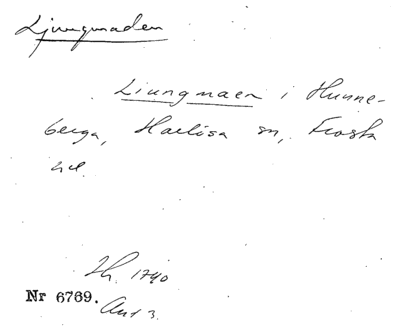 Ljungmaden
Liungmaen i Hunne-
berga, Harlösa sn, Frosta
hd.
Th. 1740
Nr 6769.
Ant 3.